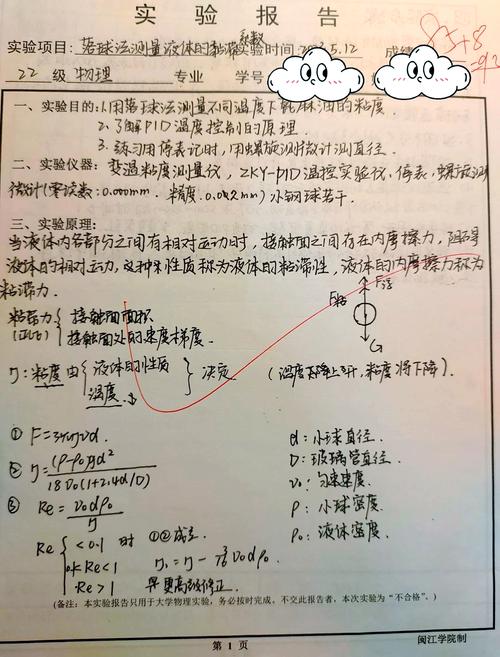 实 验 报 告
实验项目:落球法测量液体的黏滞系数 实验时间:20 3.5.12 成绩
85+8
=93
22 级 物理 专业 学号
一、实验目的:1.用落球法测量不同温度下蓖麻油的粘度
2.了解PID温度控制的原理.
3.练习用停表记时,用螺旋测微计测直径.
二、实验仪器:变温粘度测量仪,ZKY-PID温控实验仪,停表,螺旋测
微计(零读数:0.000mm. 精度:0.002mm)小钢球若干.
三、实验原理:
当液体内各部分之间有相对运动时,接触面之间存在内摩擦力,阻碍
液体的相对运动,这种性质称为液体的粘滞性,液体的内摩擦力称为
粘滞力.
粘滞力 { 接触面面积
(正比于) 接触面处的速度梯度.
F浮
F粘
G
η:粘度 由 { 液体的性质
温度. } 决定 (温度上升,粘度将下降).
① F=3πηv₀d.
② η=(ρ-ρ₀)gd²/18v₀(1+2.4d/D)
③ Re=v₀dρ₀/η
Re { <0.1 时 ①②成立.
0.1<Re<1 η₁=η-3/16 v₀dρ₀.
Re>1 考虑高次修正.
d:小球直径.
D:玻璃管直径.
v₀:匀速速度.
ρ:小球密度.
ρ₀:液体密度.
(备注:本实验报告只用于大学物理实验,务必按时完成,不交此报告者,本次实验为“不合格”。)
第 1 页 闽江学院制